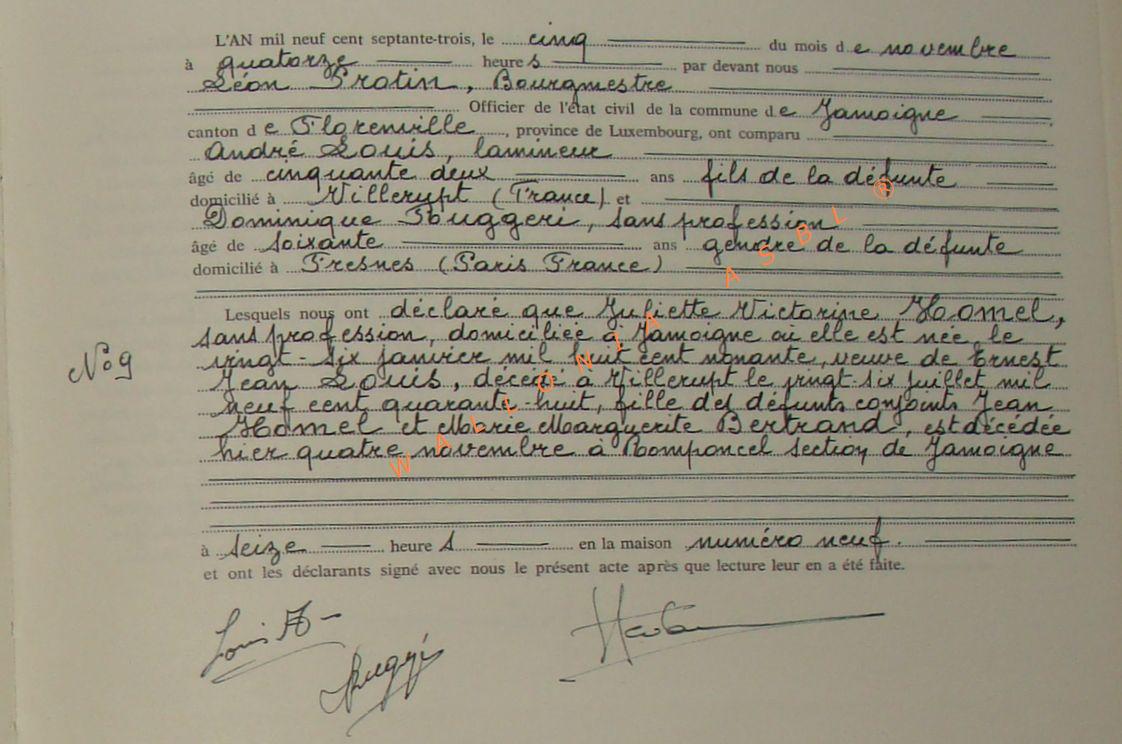 L'AN mil neuf cent septante-trois, le cinq du mois de novembre
à quatorze heures par devant nous
Léon Protin, Bourgmestre
Officier de l'état civil de la commune de Jamoigne
canton de Florenville, province de Luxembourg, ont comparu
André Louis, lamineur
âgé de cinquante deux ans fils de la défunte
domicilié à Villerupt (France) et
Dominique sans profession
âgé de soixante ans gendre de la défunte
domicilié à Fresnes (Paris France)
Lesquels nous ont déclaré que Juliette Victorine Homel,
sans profession, domiciliée à Jamoigne où elle est née le
N° 9
vingt-six janvier mil huit cent nonante, veuve de Ernest
Jean Louis, décédé à Villerupt le vingt-six juillet mil
neuf cent quarante-huit, fille des défunts conjoints Jean
Homel et Marie Marguerite Bertrand, est décédée
hier quatre novembre à Romponcel section de Jamoigne
à seize heures en la maison numéro neuf.
et ont les déclarants signé avec nous le présent acte après que lecture leur en a été faite.
Louis
WALLONIA ASBL ®